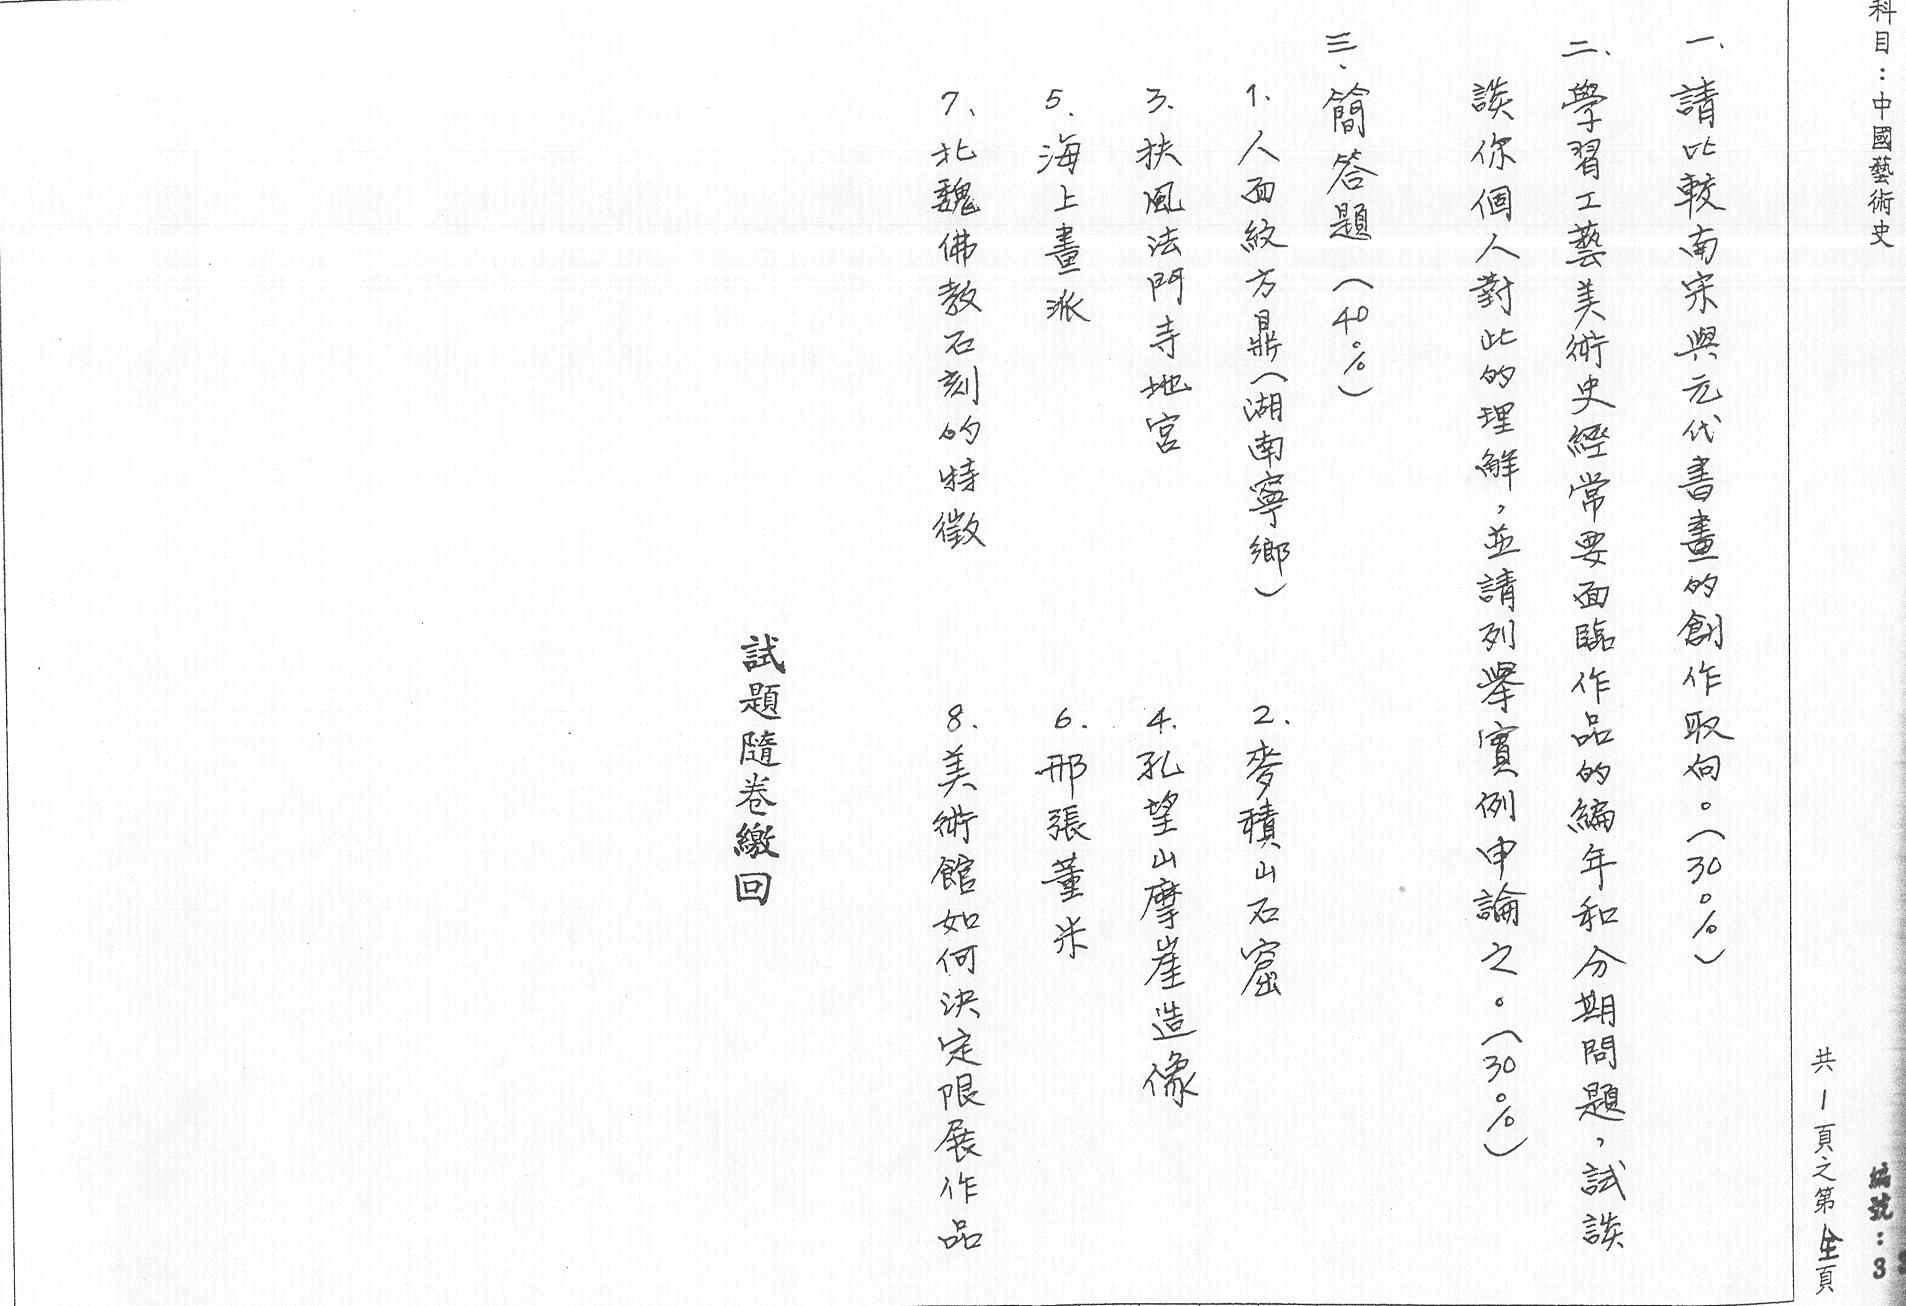 科目：中國藝術史
編號：3
共1頁之第全頁
一、請比較南宋與元代書畫的創作取向。(30%)
二、學習工藝美術史經常要面臨作品的編年和分期問題，試談
談你個人對此的理解，並請列舉實例申論之。(30%)
三、簡答題(40%)
1. 人面紋方鼎(湖南寧鄉)
2. 麥積山石窟
3. 扶風法門寺地宮
4. 孔望山摩崖造像
5. 海上畫派
6. 邢張董朱
7. 北魏佛教石刻的特徵
8. 美術館如何決定限展作品
試題隨卷繳回